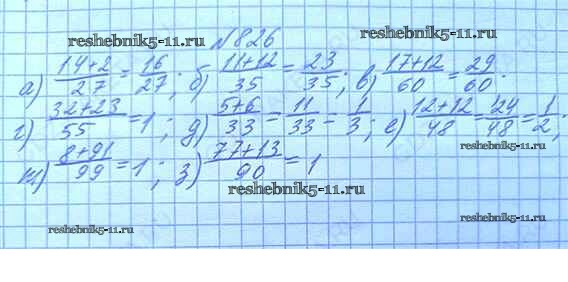 reshebnik5-11.ru №826 reshebnik5-11.ru
а) (14+2)/27 = 16/27; б) (11+12)/35 = 23/35; в) (17+12)/60 = 29/60.
г) (32+23)/55 = 1; д) (5+6)/33 = 11/33 = 1/3; е) (12+12)/48 = 24/48 = 1/2;
ж) (8+91)/99 = 1; з) (77+13)/90 = 1
reshebnik5-11.ru
reshebnik5-11.ru
reshebnik5-11.ru